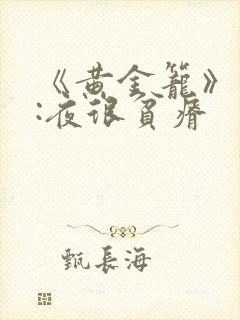 《黄金籠》
:夜很貧瘠
甄長海